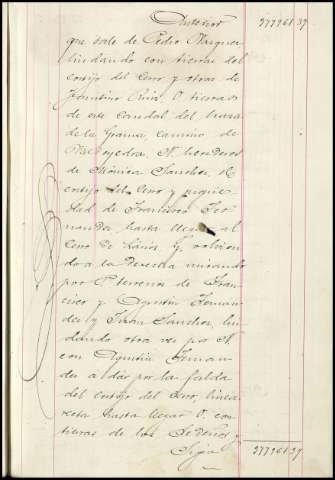 Anterior 377961.37
que sale de Pedro Marquez
lindando con tierras del
cortijo del Cerro y otras de
Faustino Ruiz O. tierras
de este caudal del haza
de la Grama, camino de
N. herederos
de Mónica Sanchez, E.
cortijo del Cerro y propie
dad de Francisco Fer
nandez hasta llegar al
Cerro de y volvien
do a la derecha mirando
por P. terrenos de Fran
cisco y Agustin Fernan
dez y Juan Sanchez, lin
dando otra vez por N.
con Agustin Fernan
dez a dar por la falda
del cortijo del Cerro, linea
recta hasta llegar O. con
tierras de los y
Sigue 377961.37